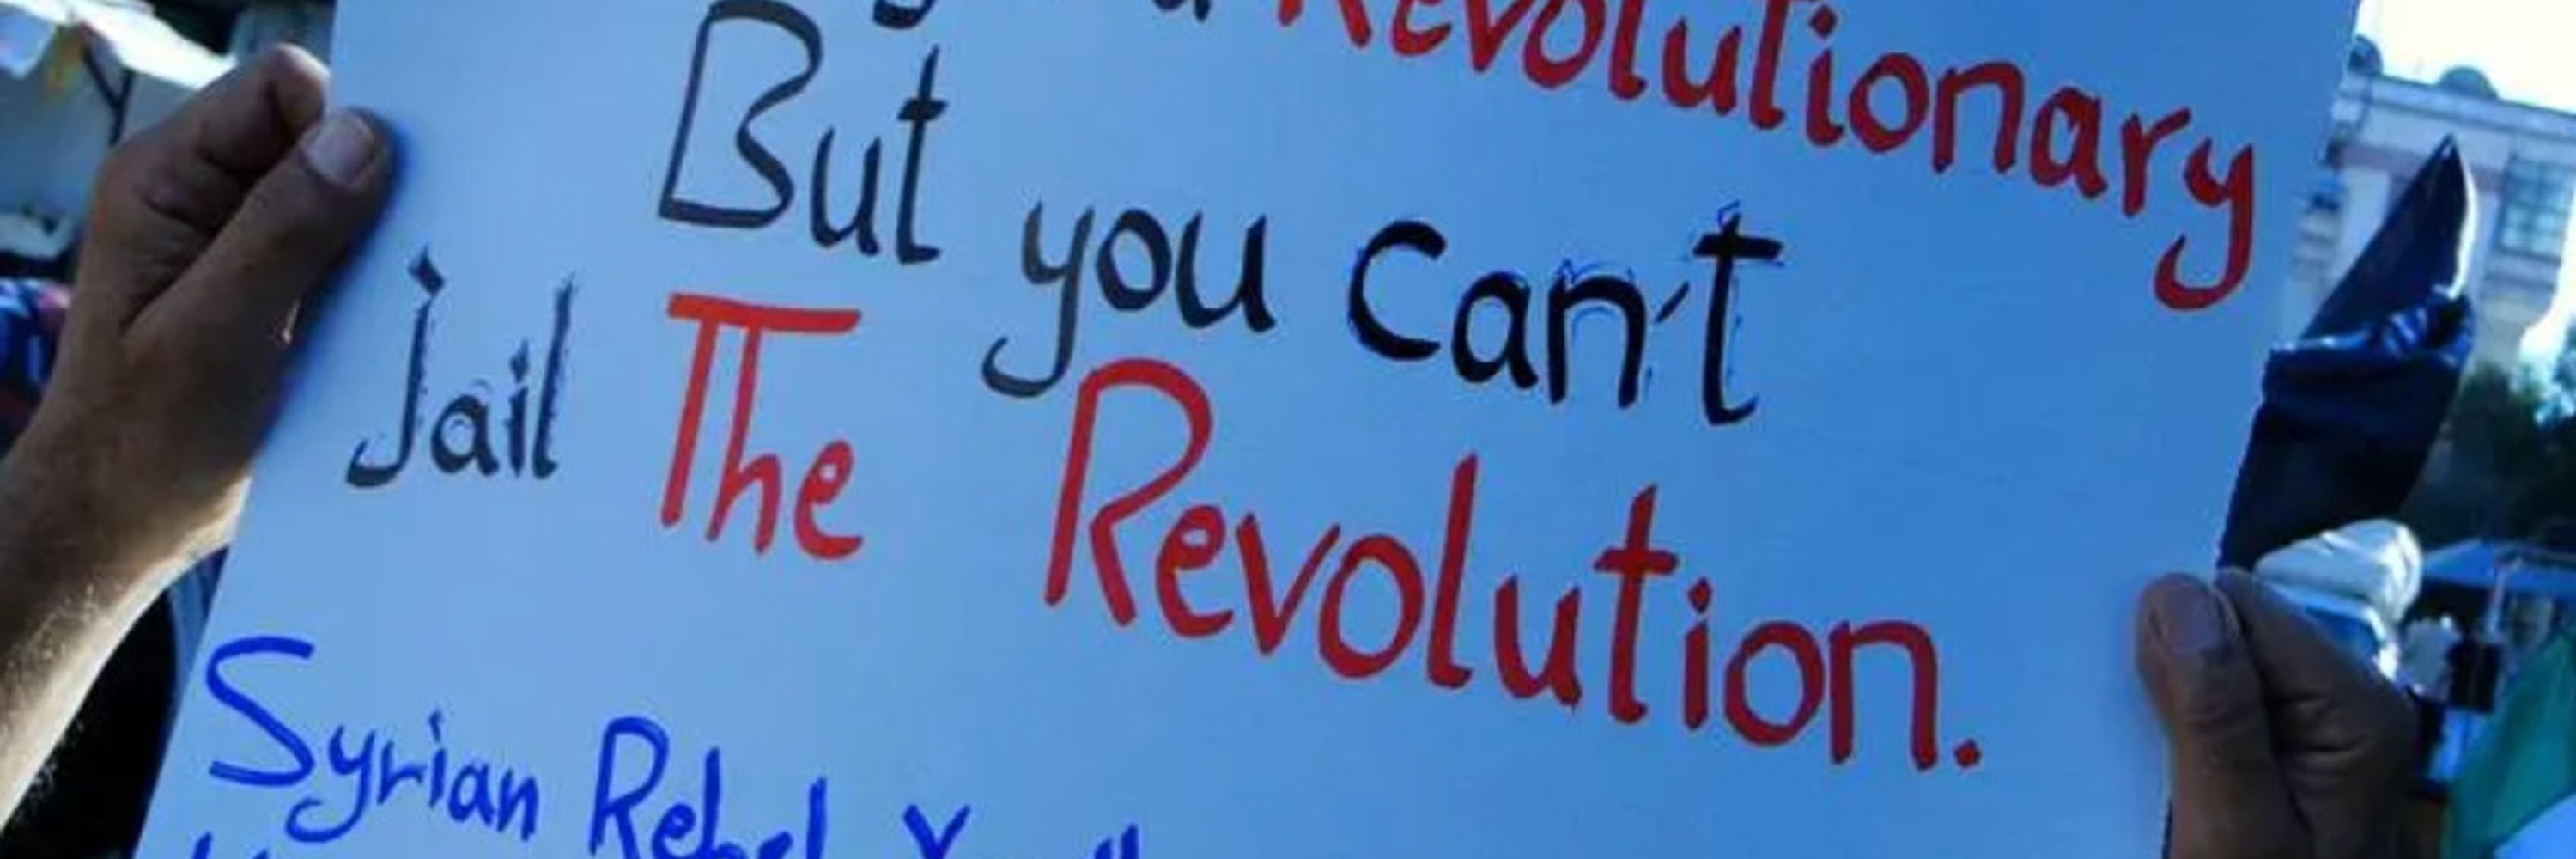 Revolutionary
But you can't
Jail The Revolution.
Syrian Rebel